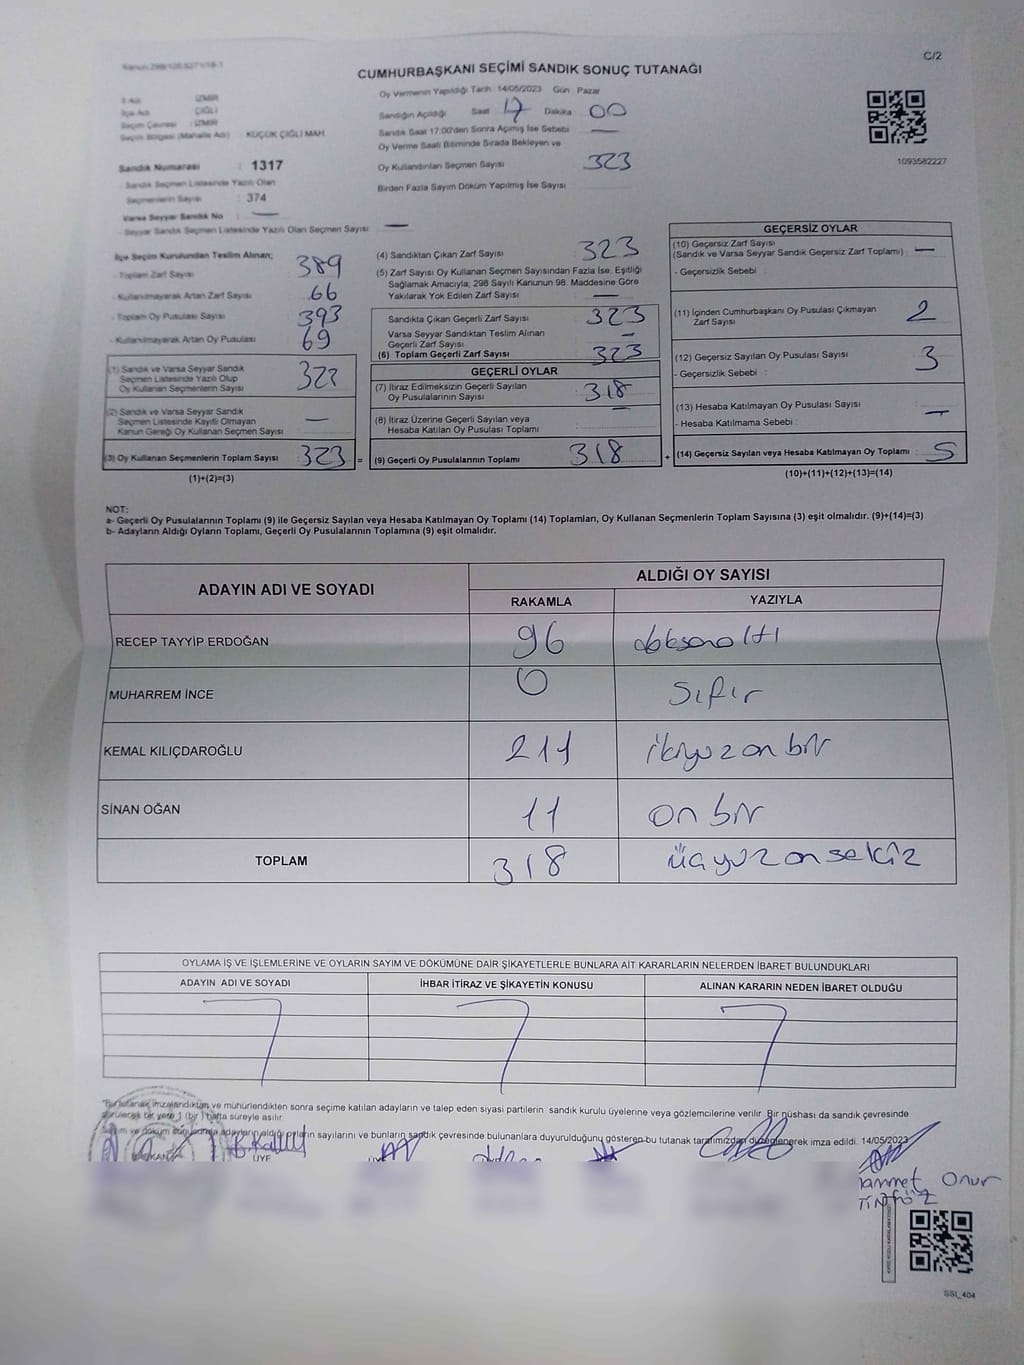 C/2
CUMHURBAŞKANI SEÇİMİ SANDIK SONUÇ TUTANAĞI
İl Adı : İZMİR
İlçe Adı : ÇİĞLİ
Seçim Çevresi : İZMİR
Seçim Bölgesi (Mahalle Adı) : KÜÇÜK ÇİĞLİ MAH
Sandık Numarası : 1317
- Sandık Seçmen Listesinde Yazılı Olan
Seçmenlerin Sayısı : 374
Varsa Seyyar Sandık No : —
- Seyyar Sandık Seçmen Listesinde Yazılı Olan Seçmen Sayısı : —
Oy Vermenin Yapıldığı Tarih 14/05/2023 Gün Pazar
Sandığın Açıldığı Saat 17 Dakika 00
Sandık Saat 17.00'den Sonra Açımış İse Sebebi —
Oy Verme Saati Bitiminde Sırada Bekleyen ve
Oy Kullandırılan Seçmen Sayısı 323
Birden Fazla Sayım Döküm Yapılmış İse Sayısı
1093582227
İlçe Seçim Kurulundan Teslim Alınan;
- Toplam Zarf Sayısı 389
- Kullanılmayarak Artan Zarf Sayısı 66
- Toplam Oy Pusulası Sayısı 393
- Kullanılmayarak Artan Oy Pusulası 69
(1) Sandık ve Varsa Seyyar Sandık
Seçmen Listesinde Yazılı Olup
Oy Kullanan Seçmenlerin Sayısı
(2) Sandık ve Varsa Seyyar Sandık
Seçmen Listesinde Kayıtlı Olmayan
Kanun Gereği Oy Kullanan Seçmen Sayısı —
(3) Oy Kullanan Seçmenlerin Toplam Sayısı : 323 =
(1)+(2)=(3)
(4) Sandıktan Çıkan Zarf Sayısı 323
(5) Zarf Sayısı Oy Kullanan Seçmen Sayısından Fazla İse, Eşitliği
Sağlamak Amacıyla, 298 Sayılı Kanunun 98. Maddesine Göre
Yakılarak Yok Edilen Zarf Sayısı —
Sandıkta Çıkan Geçerli Zarf Sayısı 323
Varsa Seyyar Sandıktan Teslim Alınan
Geçerli Zarf Sayısı —
(6) Toplam Geçerli Zarf Sayısı 323
GEÇERLİ OYLAR
(7) İtiraz Edilmeksizin Geçerli Sayılan
Oy Pusulalarının Sayısı : 318
(8) İtiraz Üzerine Geçerli Sayılan veya
Hesaba Katılan Oy Pusulası Toplamı : —
(9) Geçerli Oy Pusulalarının Toplamı : 318 +
GEÇERSİZ OYLAR
(10) Geçersiz Zarf Sayısı
(Sandık ve Varsa Seyyar Sandık Geçersiz Zarf Toplamı) : —
- Geçersizlik Sebebi :
(11) İçinden Cumhurbaşkanı Oy Pusulası Çıkmayan
Zarf Sayısı : 2
(12) Geçersiz Sayılan Oy Pusulası Sayısı : 3
- Geçersizlik Sebebi :
(13) Hesaba Katılmayan Oy Pusulası Sayısı : —
- Hesaba Katılmama Sebebi :
(14) Geçersiz Sayılan veya Hesaba Katılmayan Oy Toplamı : 5
(10)+(11)+(12)+(13)=(14)
NOT:
a- Geçerli Oy Pusulalarının Toplamı (9) ile Geçersiz Sayılan veya Hesaba Katılmayan Oy Toplamı (14) Toplamları, Oy Kullanan Seçmenlerin Toplam Sayısına (3) eşit olmalıdır. (9)+(14)=(3)
b- Adayların Aldığı Oyların Toplamı, Geçerli Oy Pusulalarının Toplamına (9) eşit olmalıdır.
ADAYIN ADI VE SOYADI ALDIĞI OY SAYISI
RAKAMLA YAZIYLA
RECEP TAYYİP ERDOĞAN 96 doksanaltı
MUHARREM İNCE 0 Sıfır
KEMAL KILIÇDAROĞLU 211 ikiyüzonbir
SİNAN OĞAN 11 onbir
TOPLAM 318 üçyüzonsekiz
OYLAMA İŞ VE İŞLEMLERİNE VE OYLARIN SAYIM VE DÖKÜMÜNE DAİR ŞİKAYETLERLE BUNLARA AİT KARARLARIN NELERDEN İBARET BULUNDUKLARI
ADAYIN ADI VE SOYADI İHBAR İTİRAZ VE ŞİKAYETİN KONUSU ALINAN KARARIN NEDEN İBARET OLDUĞU
"Bu tutanak imzalandıktan ve mühürlendikten sonra seçime katılan adayların ve talep eden siyasi partilerin sandık kurulu üyelerine veya gözlemcilerine verilir. Bir nüshası da sandık çevresinde
görülecek bir yere 1 (bir) hafta süreyle asılır.
Sayım ve döküm sonucunda adayların aldığı oyların sayılarını ve bunların sandık çevresinde bulunanlara duyurulduğunu gösteren bu tutanak tarafımızdan düzenlenerek imza edildi. 14/05/2023
BAŞKAN ÜYE
Onur
SSI_404